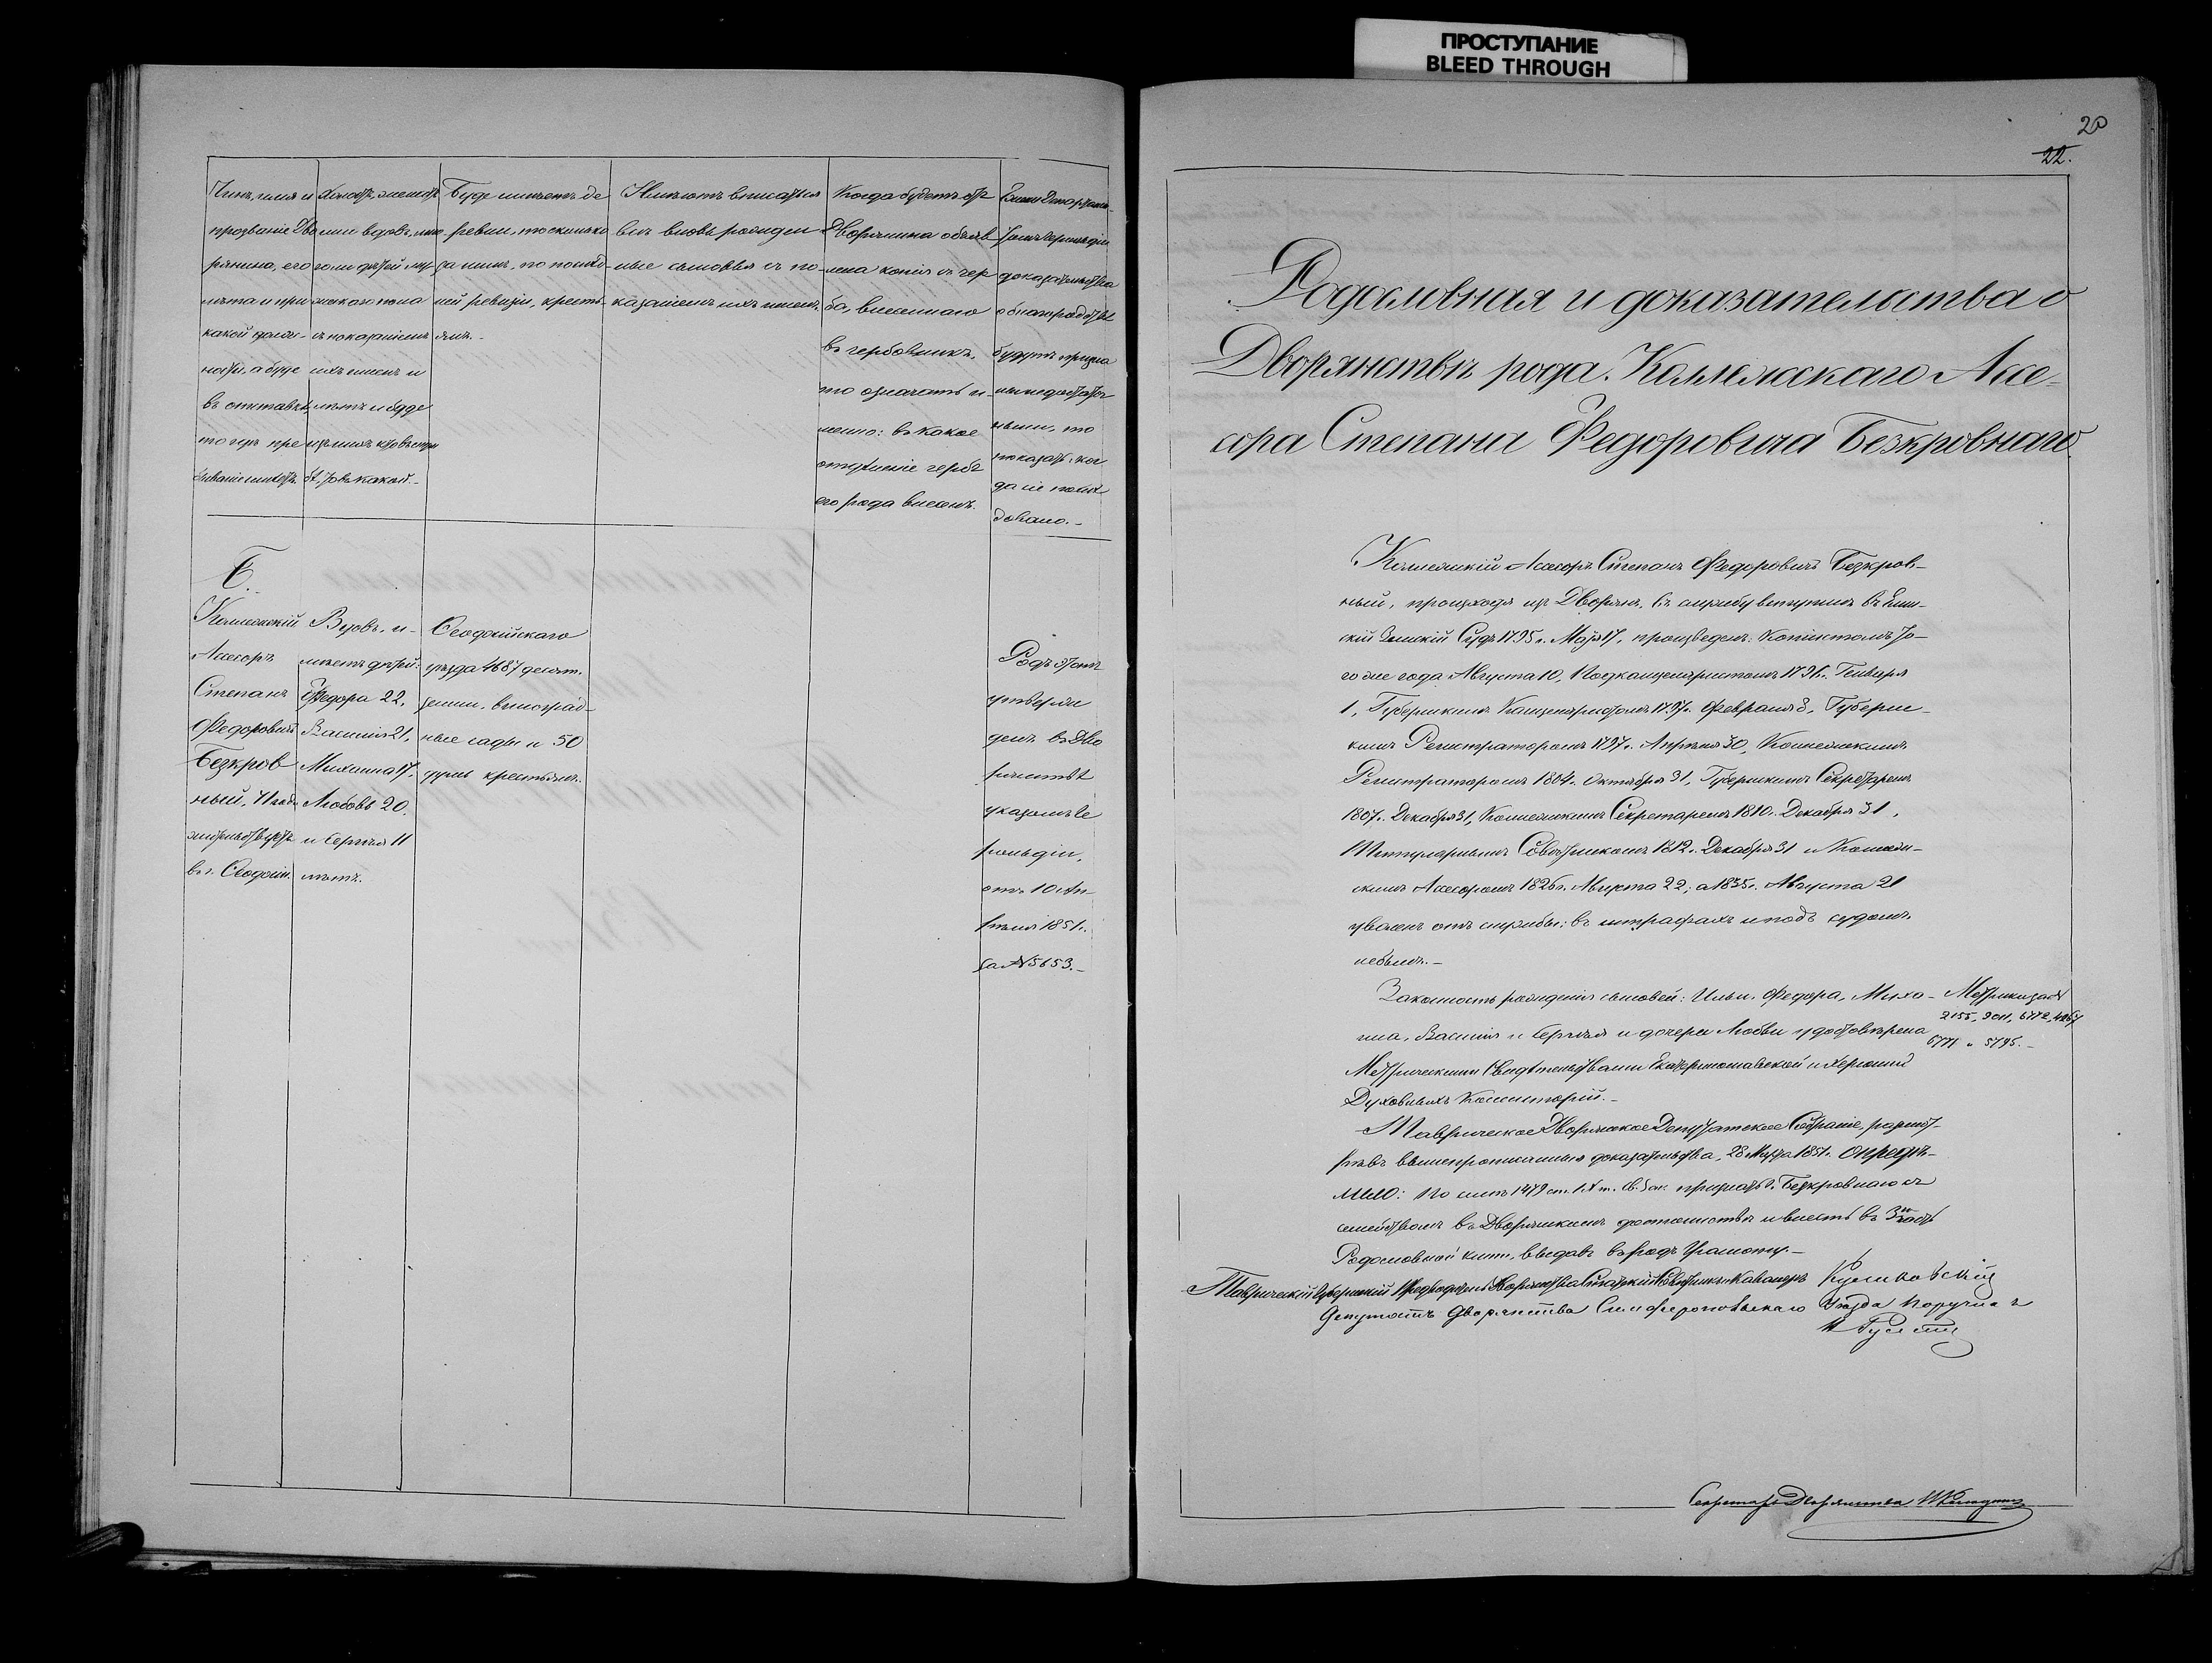 ПРОСТУПАНИЕ
BLEED THROUGH
Чинъ, имя и
прозваніе Дво
рянина, его
лѣта и при
какой долж-
ности, а буде
въ отставкѣ,
то гдѣ пре
бываніе имѣетъ.
Холостъ, женатъ
или вдовъ, мно-
голи дѣтей му-
жескаго пола
съ показаніемъ
ихъ именъ и
лѣтъ и буде
Буде имѣетъ де
ревни, то сколько
за нимъ, по послѣд-
ней ревизіи, кресть-
янъ.-
Неимѣютъ вписаться
въ вновь рожден
ные сыновья съ по-
казаніемъ ихъ именъ.
Когда будетъ отъ
Дворянина объяв
лена копія съ гер
ба, внесеннаго
въ гербовникъ,
то означать и-
менно: въ какое
отдѣленіе гербъ
его рода внесенъ.
доказательства
о благородствѣ
будутъ призна
ны недостаточ
ными, то
показать, ког
да сіе послѣ
довало.-
Б.
Коллежскій
Асесоръ
Степанъ
Федоровичъ
Безкров
ный,
въ г. Ѳеодосіи.
Вдовъ, и-
мѣетъ дѣтей:
Федора 22,
Василія 21,
Михаила 17,
Любовь 20,
и Сергѣя 11
лѣтъ.
Ѳеодосійскаго
уѣзда 4687 десят.
земли, виноград-
ные сады и 50
душъ крестьянъ.
Родъ этотъ
утверж
денъ въ Дво
рянствѣ
указомъ Ге
рольдіи,
отъ 10 Ап-
рѣля 1851 г.
за № 5653.-
20
22.
Родословная и доказательства о
Дворянствѣ рода Коллежскаго Ассе-
сора Степана Федоровича Безкровнаго
Коллежскій Асесоръ Степанъ Федоровичъ Безкров-
ный, происходя изъ Дворянъ, въ службу вступилъ въ
скій Земскій Судъ 1795 г. Мая 17, произведенъ: Копіистомъ то-
го же года Августа 10, Подканцеляристомъ 1796 г. Генваря
1, Губернскимъ Канцеляристомъ 1797 г. Февраля 8, Губернс-
кимъ Регистраторомъ 1797 г. Апрѣля 30, Коллежскимъ
Регистраторомъ 1804 г. Октября 31, Губернскимъ Секретаремъ
1807 г. Декабря 31, Коллежскимъ Секретаремъ 1810 г. Декабря 31,
Титулярнымъ Совѣтникомъ 1812 г. Декабря 31 и Коллеж-
скимъ Асесоромъ 1826 г. Августа 22; а 1835 г. Августа 21
уволенъ отъ службы: въ штрафахъ и подъ судомъ
небылъ.-
Законность рожденія сыновей: Ильи, Федора, Миха-
ила, Василія и Сергѣя и дочери Любви удостовѣрена
Метрическими Свидѣтельствами Екатеринославской и Херсонской
Духовныхъ Консисторій.-
Таврическое Дворянское Депутатское Собраніе, разсмот-
рѣвъ вышепрописанныя доказательства, 28 Марта 1851 г. опредѣ-
лило: по силѣ 1479 ст. IX т. Св. Зак. признать г. Безкровнаго съ
семействомъ въ Дворянскомъ достоинствѣ и внесть въ 3ю часть
Родословной книги, выдавъ въ родъ Грамоту.-
Таврическій Губернскій Предводитель Дворянства Статскій Совѣтникъ и Кавалеръ
Депутатъ Дворянства Симферопольскаго Уѣзда Поручикъ
Секретарь Дворянства